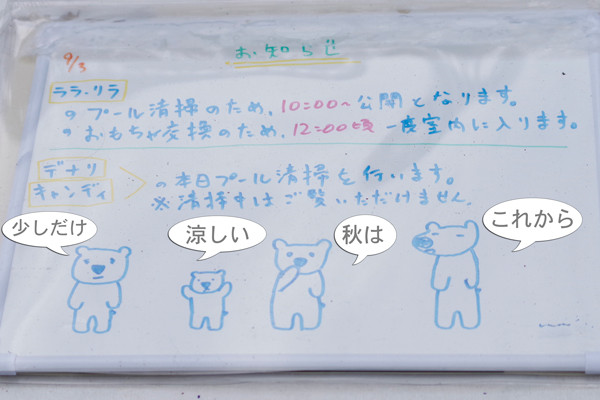 お知らせ
9/3
ララ・リラ
プール清掃のため、10:00〜公開となります。
おもちゃ交換のため、12:00頃 一度室内に入ります。
デナリ
キャンディ
本日プール清掃を行います。
※清掃中はご覧いただけません。
少しだけ
涼しい
秋は
これから